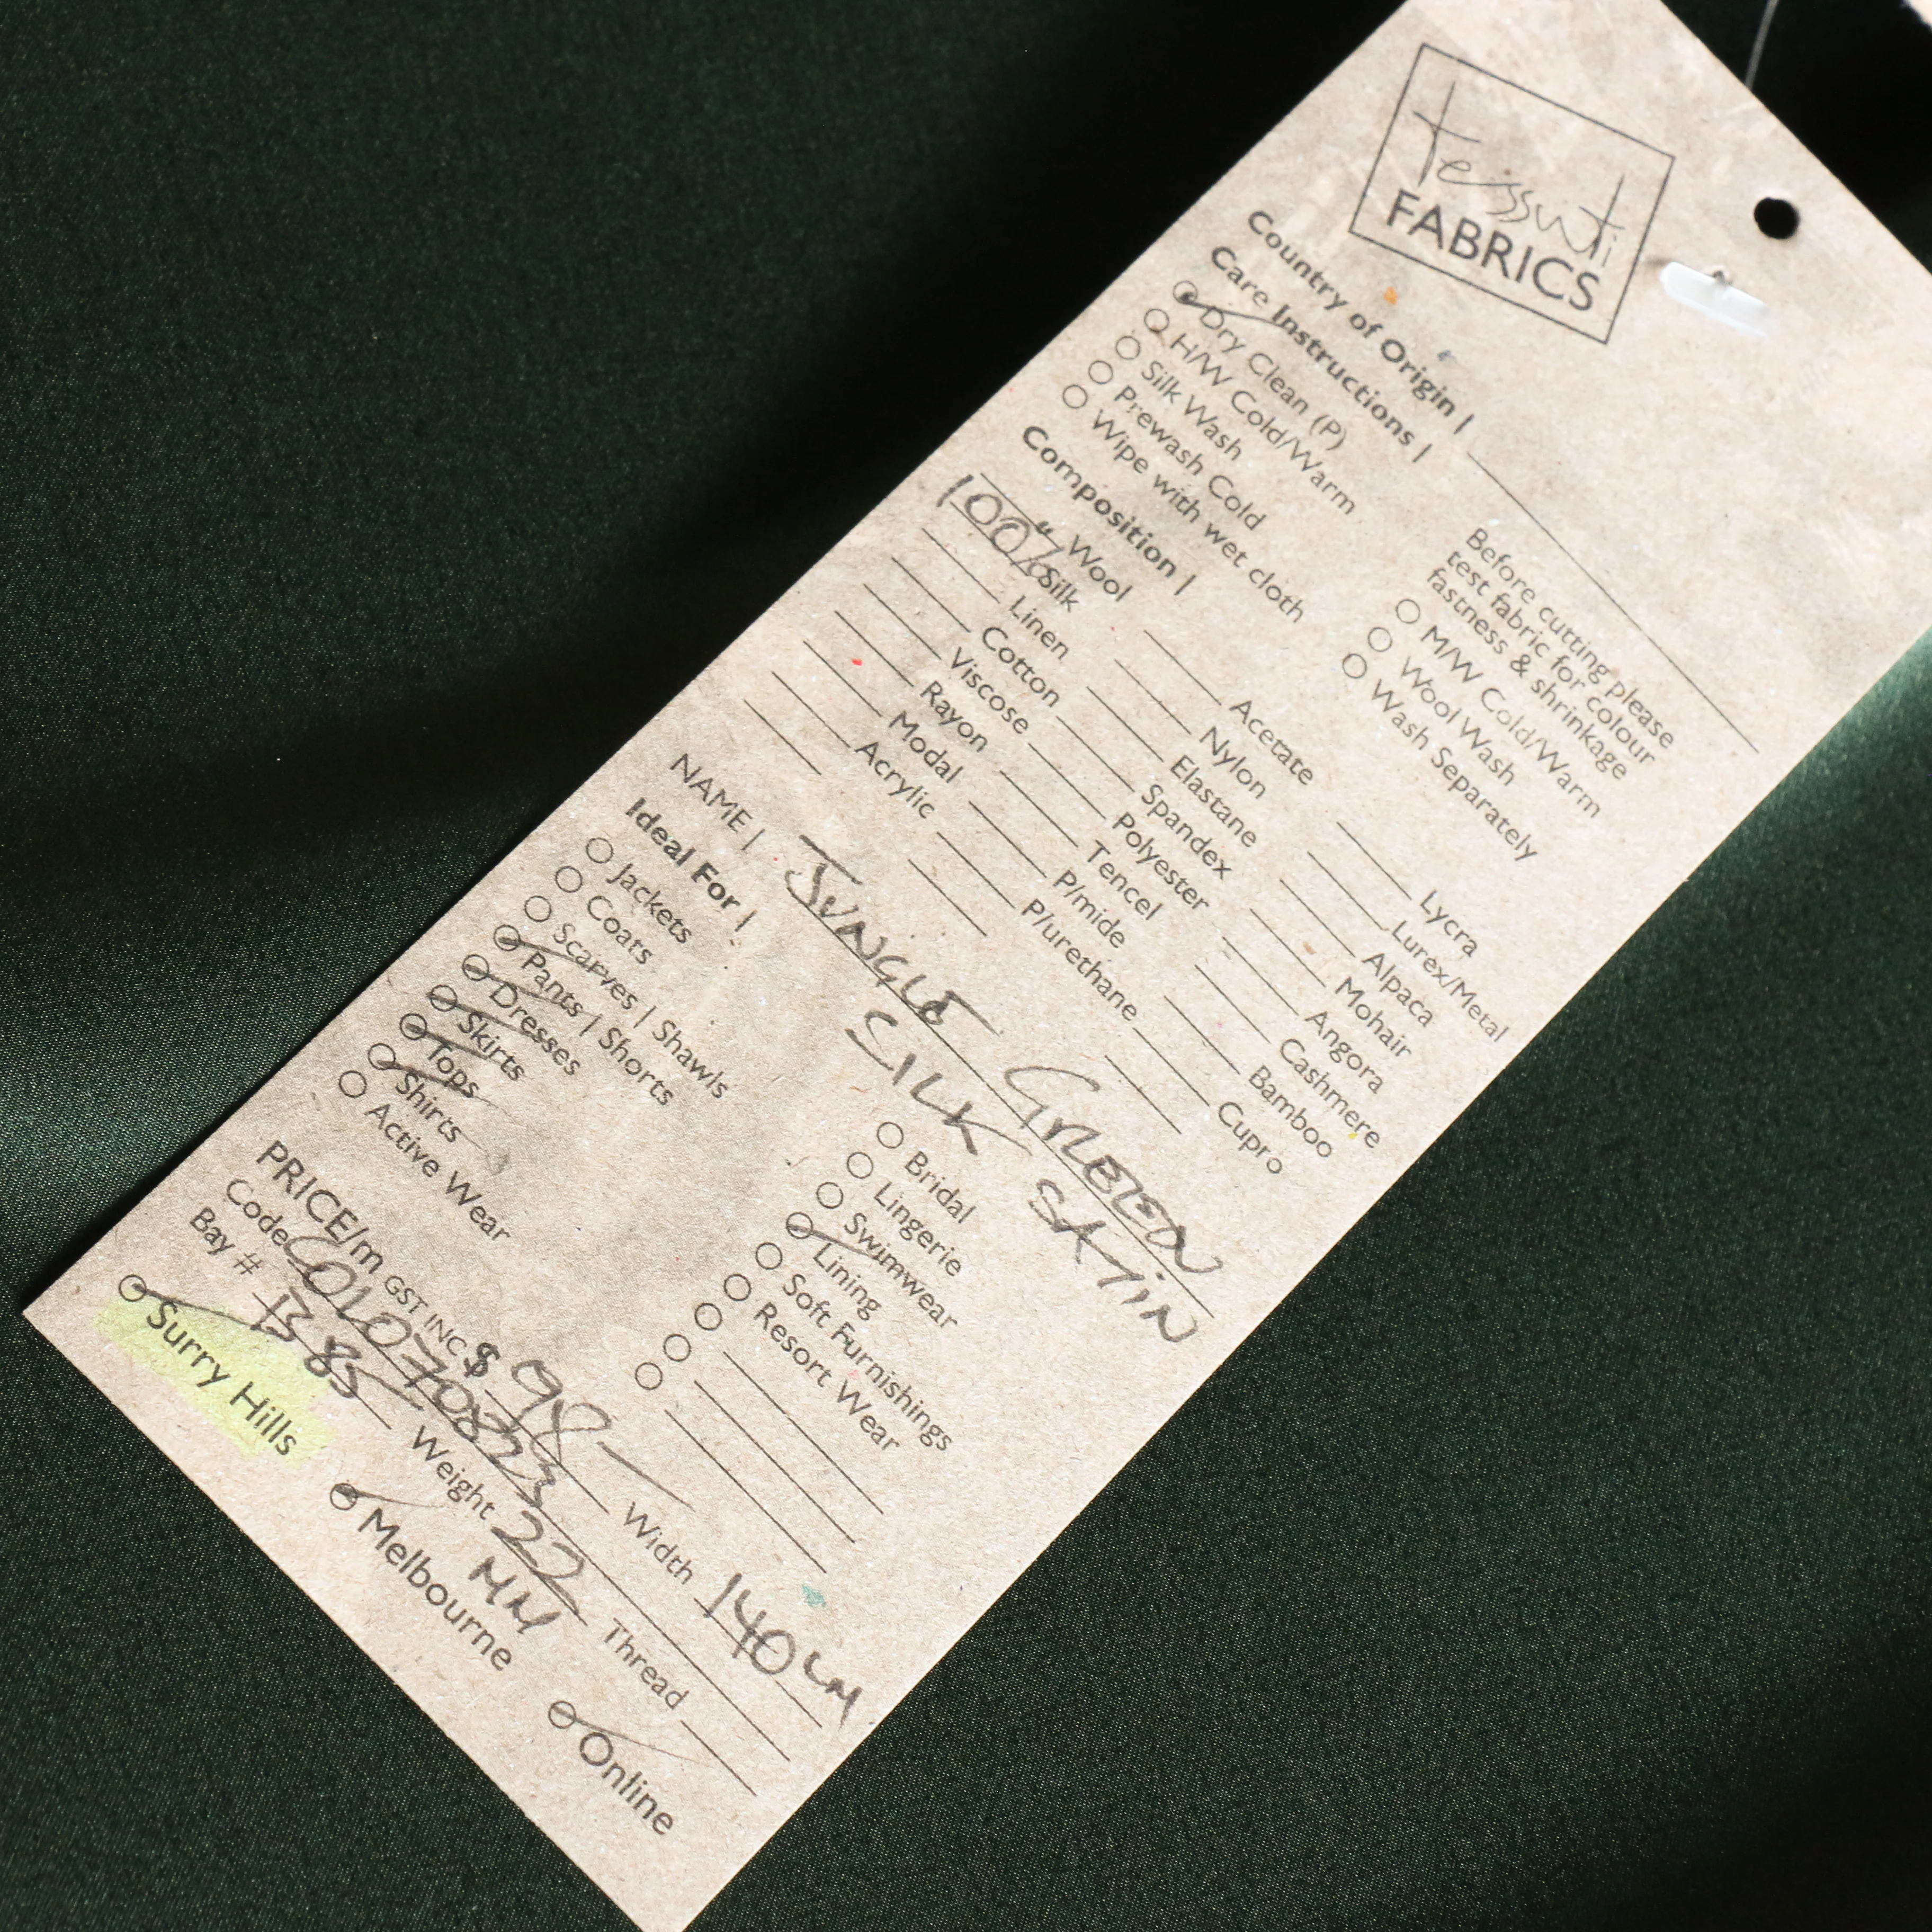 tessuti
FABRICS
Country of Origin |
Care Instructions |
Dry Clean (P)
H/W Cold/Warm
Silk Wash
Prewash Cold
Wipe with wet cloth
Before cutting please
test fabric for colour
fastness & shrinkage
M/W Cold/Warm
Wool Wash
Wash Separately
Composition |
Wool Acetate Lycra
100% Silk Nylon Lurex/Metal
Linen Elastane Alpaca
Cotton Spandex Mohair
Viscose Polyester Angora
Rayon Tencel Cashmere
Modal P/mide Bamboo
Acrylic P/urethane Cupro
NAME | JUNGLE GREEN
SILK SATIN
Ideal For |
Jackets
Coats
Scarves | Shawls
Pants | Shorts
Dresses
Skirts
Tops
Shirts
Active Wear
Bridal
Lingerie
Swimwear
Lining
Soft Furnishings
Resort Wear
PRICE/m GST INC $ 98- Width 140cm
Code C01070823
Bay # B85 Weight 22 MM Thread
Surry Hills Melbourne Online